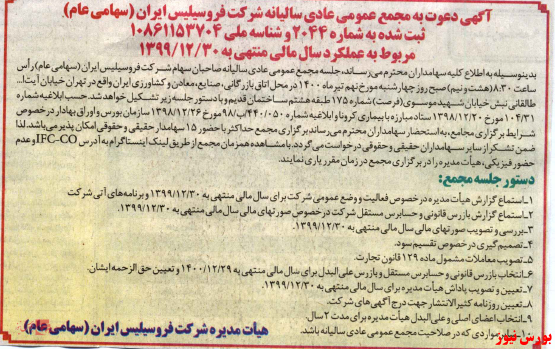 آگهی دعوت به مجمع عمومی عادی سالیانه شرکت فروسیلیس ایران (سهامی عام)
ثبت شده به شماره ۲۰۴۴ و شناسه ملی ۱۰۸۶۱۱۵۳۷۰۴
مربوط به عملکرد سال مالی منتهی به ۱۳۹۹/۱۲/۳۰
بدینوسیله به اطلاع کلیه سهامداران محترم می‌رساند، جلسه مجمع عمومی عادی سالیانه صاحبان سهام شرکت فروسیلیس ایران (سهامی عام) رأس
ساعت ۸:۳۰ (هشت و نیم) صبح روز چهارشنبه مورخ نهم تیر ماه ۱۴۰۰ در محل اتاق بازرگانی، صنایع، معادن و کشاورزی ایران واقع در تهران خیابان آیت‌ا...
طالقانی نبش خیابان شهید موسوی (فرصت) شماره ۱۷۵ طبقه هشتم ساختمان قدیم و با دستور جلسه زیر تشکیل خواهد شد. حسب ابلاغیه شماره
۱۰۴/۳۱ مورخ ۱۳۹۸/۱۲/۲۰ ستاد مبارزه با بیماری کرونا و ابلاغیه شماره ۴۴۰/۰۵۰/ب/۹۸ مورخ ۱۳۹۸/۱۲/۲۶ سازمان بورس و اوراق بهادار در خصوص
شرایط برگزاری مجامع، به استحضار سهامداران محترم می‌رساند برگزاری مجمع حداکثر با حضور ۱۵ سهامدار حقیقی و حقوقی امکان پذیر می‌باشد. لذا
ضمن تشکر از سایر سهامداران حقیقی و حقوقی درخواست می‌گردد، با مشاهده همزمان مجمع از طریق لینک اینستاگرام به آدرس IFC-CO و عدم
حضور فیزیکی، هیأت مدیره را در برگزاری مجمع در زمان مقرر یاری نمایند.
دستور جلسه مجمع:
۱ـ استماع گزارش هیأت مدیره در خصوص فعالیت و وضع عمومی شرکت برای سال مالی منتهی به ۱۳۹۹/۱۲/۳۰ و برنامه‌های آتی شرکت
۲ـ استماع گزارش بازرس قانونی و حسابرس مستقل شرکت در خصوص صورتهای مالی سال مالی منتهی به ۱۳۹۹/۱۲/۳۰.
۳ـ بررسی و تصویب صورتهای مالی سال مالی منتهی به ۱۳۹۹/۱۲/۳۰.
۴ـ تصمیم گیری در خصوص تقسیم سود.
۵ـ تصویب معاملات مشمول ماده ۱۲۹ قانون تجارت.
۶ـ انتخاب بازرس قانونی و حسابرس مستقل و بازرس علی البدل برای سال مالی منتهی به ۱۴۰۰/۱۲/۲۹ و تعیین حق الزحمه ایشان.
۷ـ تعیین و تصویب پاداش هیأت مدیره برای سال مالی منتهی به ۱۳۹۹/۱۲/۳۰.
۸ـ تعیین روزنامه کثیرالانتشار جهت درج آگهی‌های شرکت.
۹ـ انتخاب اعضای اصلی و علی البدل هیأت مدیره برای مدت ۲ سال.
۱۰ـ سایر مواردی که در صلاحیت مجمع عمومی عادی سالیانه باشد.
هیأت مدیره شرکت فروسیلیس ایران (سهامی عام)
بورس نیوز